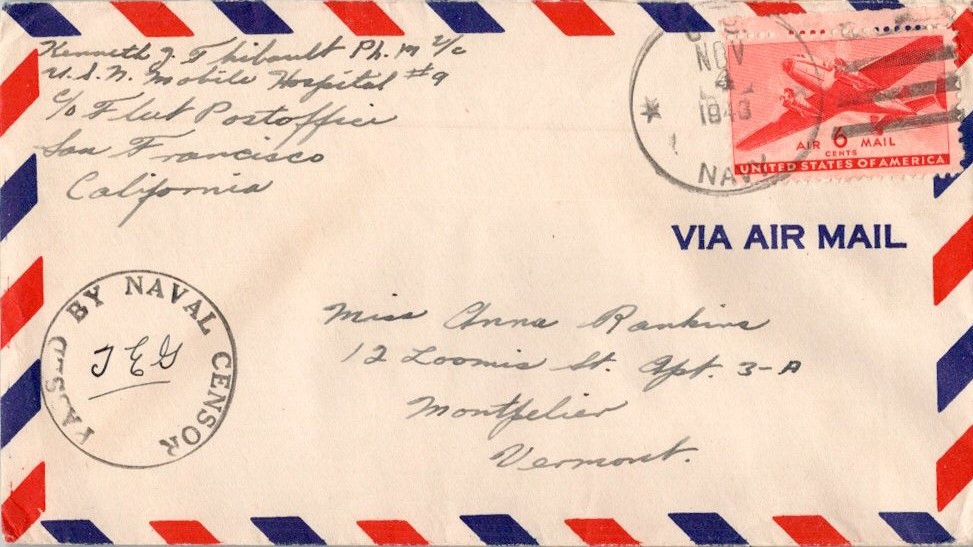 Kenneth J. Thibault Ph. M 2/c
U.S.N. Mobile Hospital #9
c/o Fleet Postoffice
San Francisco
California
NOV
4
1943
NAVY
AIR 6 MAIL
CENTS
UNITED STATES OF AMERICA
VIA AIR MAIL
PASSED BY NAVAL CENSOR
JEG
Miss Anna Rankins
12 Loomis St. Apt. 3-A
Montpelier
Vermont.